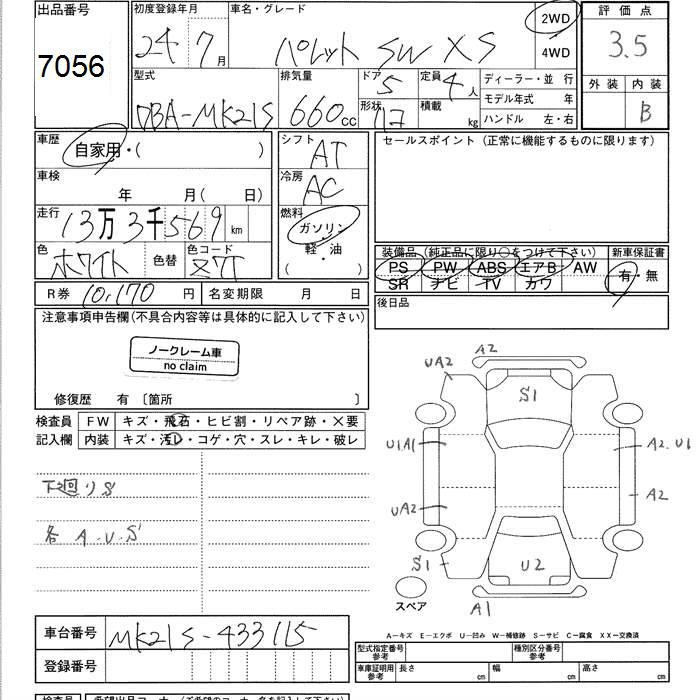 出品番号
7056
初度登録年月
24 7月
車名・グレード
パレット SW XS
2WD
4WD
評価点
3.5
外装 内装
B
型式
DBA-MK21S
排気量
660cc
ドア
5
形状
定員
4人
積載
kg
ディーラー・並行
モデル年式 年
ハンドル 左・右
車歴
自家用・( )
シフト
AT
セールスポイント (正常に機能するものに限ります)
車検
年 月( 日)
冷房
AC
走行
13万3千569km
燃料
ガソリン
軽・油
( )
色
ホワイト
色替
色コード
Z7T
装備品 (純正品に限り○をつけて下さい)
PS PW ABS エアB AW
SR ナビ TV カワ
新車保証書
有・無
R券 10,170円
名変期限 月 日
後日品
注意事項申告欄(不具合内容等は具体的に記入して下さい)
ノークレーム車
no claim
修復歴 有 〔箇所 〕
検査員
記入欄
FW キズ・飛石・ヒビ割・リペア跡・X要
内装 キズ・汚レ・コゲ・穴・スレ・キレ・破レ
下廻りS
各 A.U.S
A2
UA2
S1
U1A1
A2.U1
UA2
A2
S1
U2
A1
スペア
A-キズ E-エクボ U-凹み W-補修跡 S-サビ C-腐食 XX-交換済
車台番号
MK21S-433115
登録番号
型式指定番号
参考
種別区分番号
参考
車庫証明用
参考
長さ cm
幅 cm
高さ cm